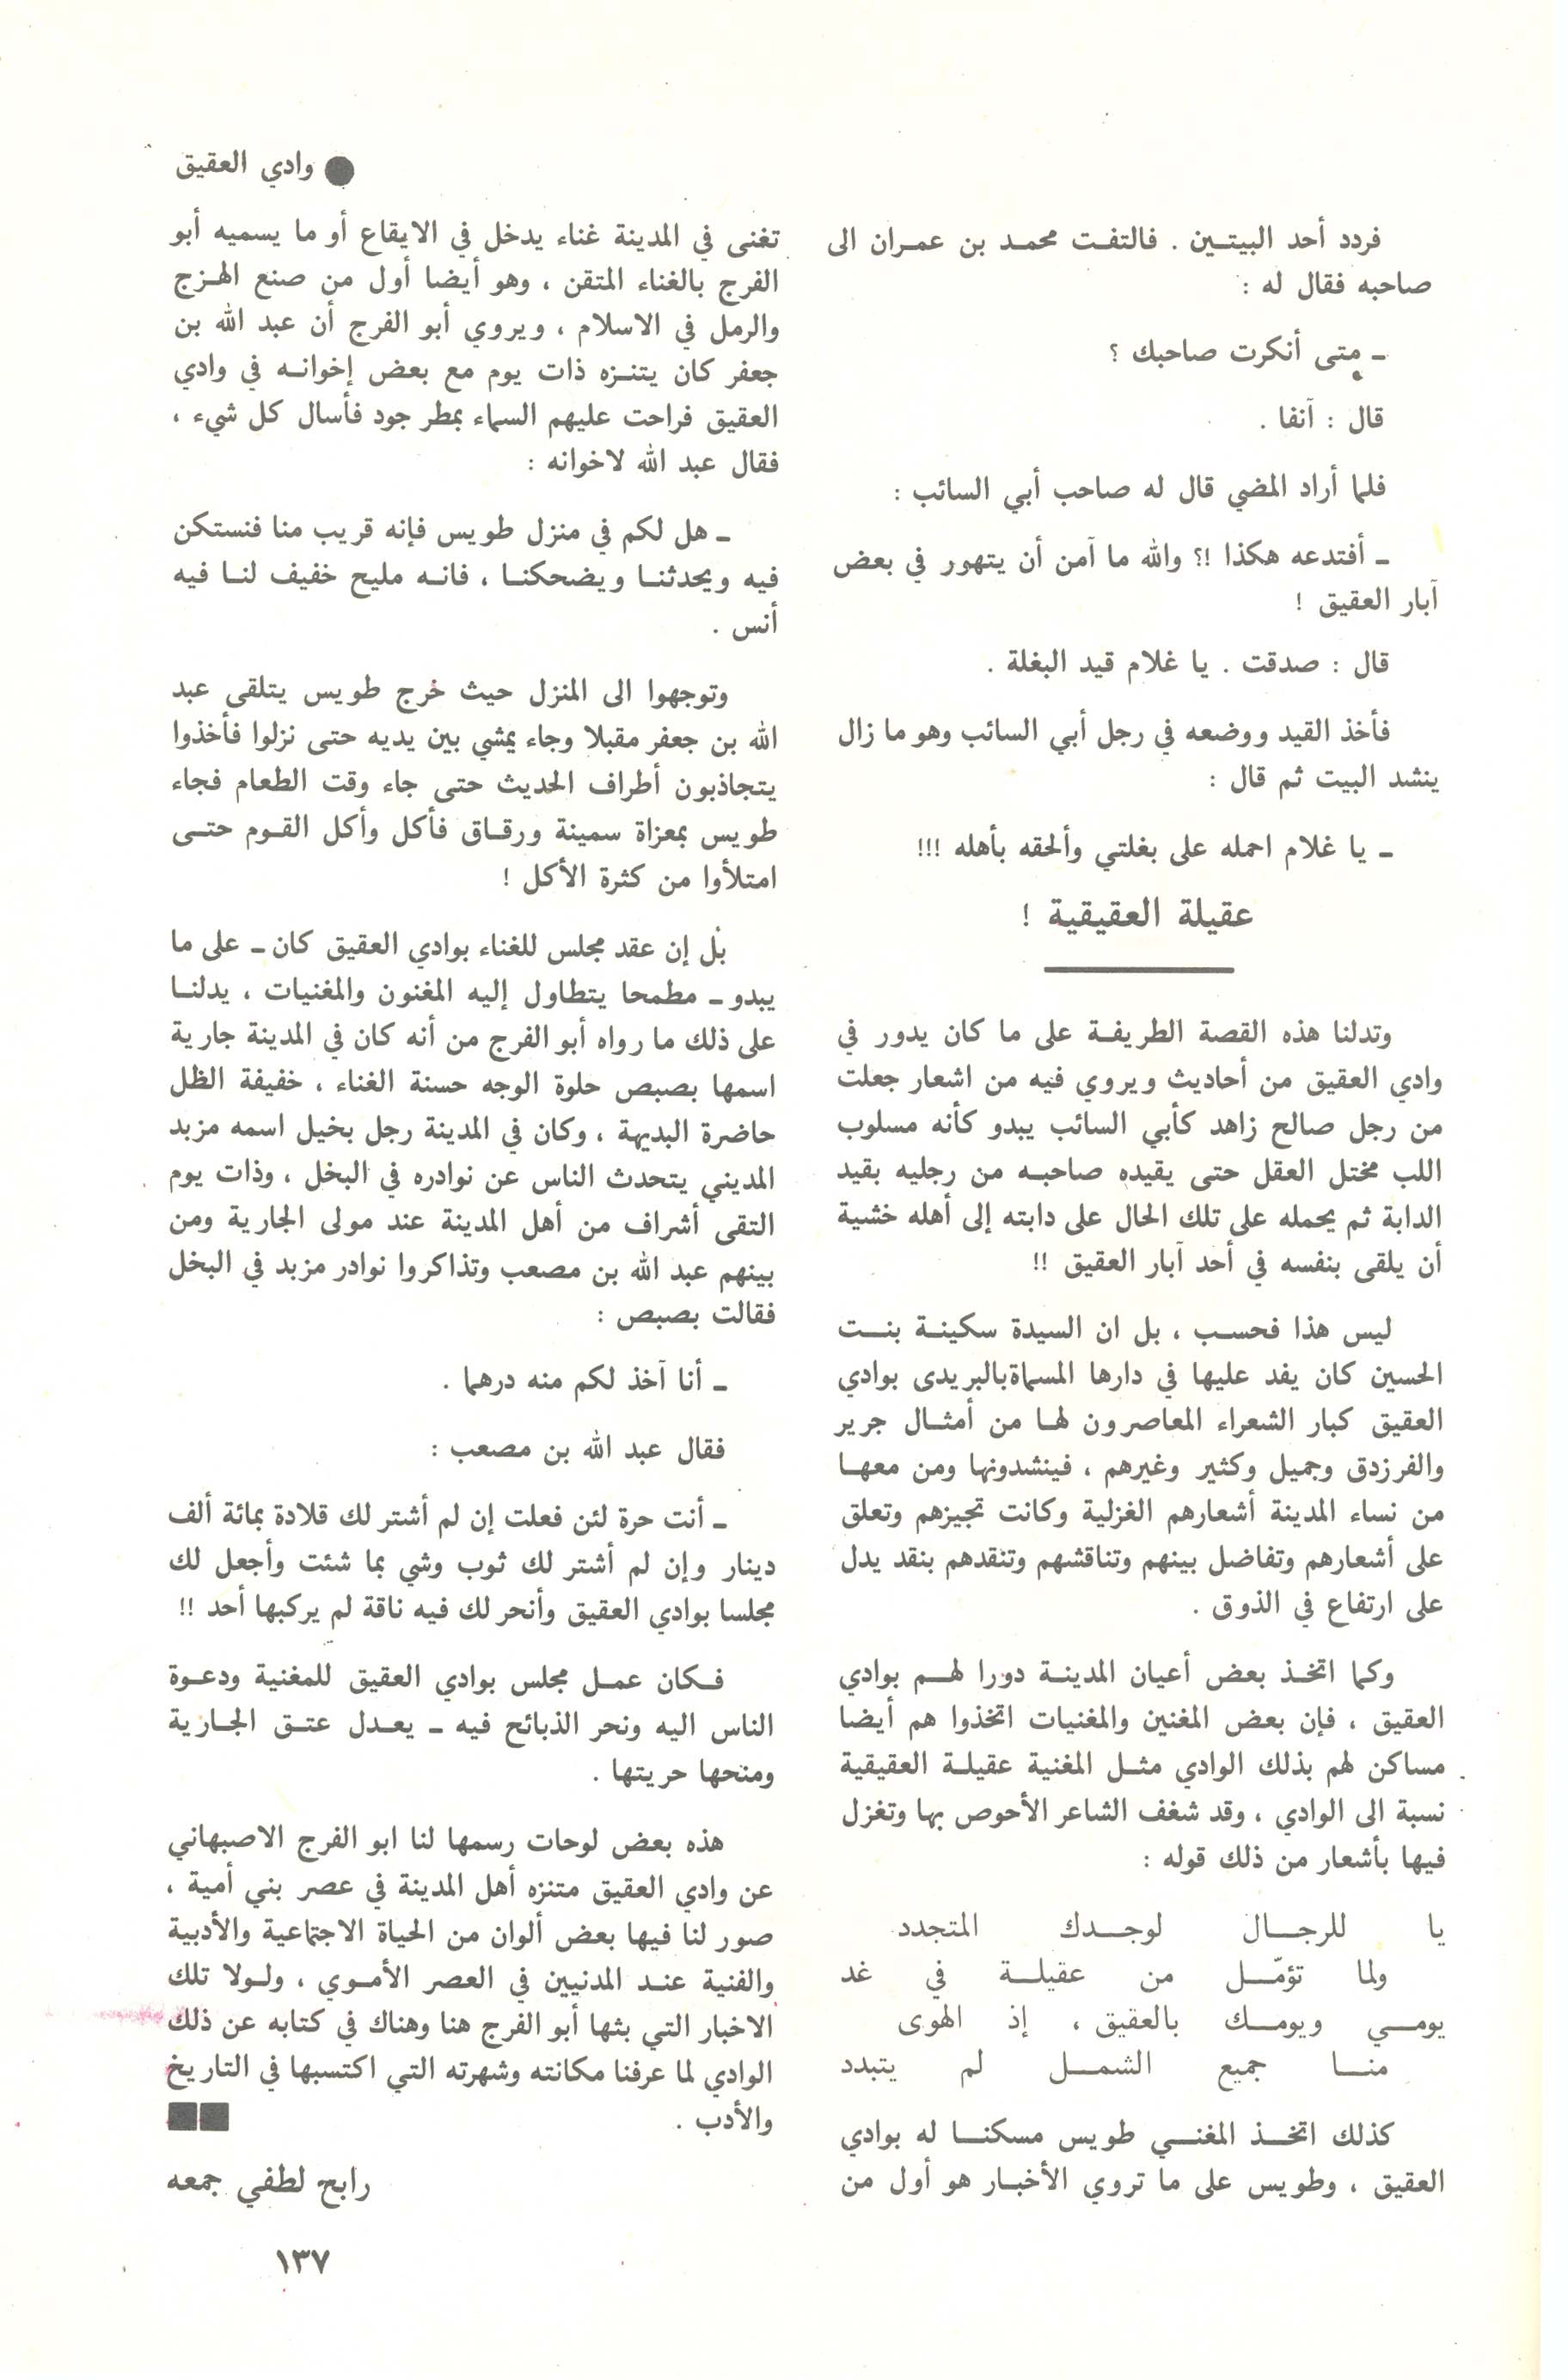 ● وادي العقيق
فردد أحد البيتين . فالتفت محمد بن عمران الى
صاحبه فقال له :
ـ متى أنكرت صاحبك ؟
قال : آنفا .
فلما أراد المضي قال له صاحب أبي السائب :
ـ أفتدعه هكذا !؟ والله ما آمن أن يتهور في بعض
آبار العقيق !
قال : صدقت . يا غلام قيد البغلة .
فأخذ القيد ووضعه في رجل أبي السائب وهو ما زال
ينشد البيت ثم قال :
ـ يا غلام احمله على بغلتي وألحقه بأهله !!!
عقيلة العقيقية !
وتدلنا هذه القصة الطريفة على ما كان يدور في
وادي العقيق من أحاديث ويروي فيه من اشعار جعلت
من رجل صالح زاهد كأبي السائب يبدو كأنه مسلوب
اللب مختل العقل حتى يقيده صاحبه من رجليه بقيد
الدابة ثم يحمله على تلك الحال على دابته إلى أهله خشية
أن يلقى بنفسه في أحد آبار العقيق !!
ليس هذا فحسب ، بل ان السيدة سكينة بنت
الحسين كان يفد عليها في دارها المسماة بالبريدى بوادي
العقيق كبار الشعراء المعاصرون لها من أمثال جرير
والفرزدق وجميل وكثير وغيرهم ، فينشدونها ومن معها
من نساء المدينة أشعارهم الغزلية وكانت تجيزهم وتعلق
على أشعارهم وتفاضل بينهم وتناقشهم وتنقدهم بنقد يدل
على ارتفاع في الذوق .
وكما اتخذ بعض أعيان المدينة دورا لهم بوادي
العقيق ، فإن بعض المغنين والمغنيات اتخذوا هم أيضا
مساكن لهم بذلك الوادي مثل المغنية عقيلة العقيقية
نسبة الى الوادي ، وقد شغف الشاعر الأحوص بها وتغزل
فيها بأشعار من ذلك قوله :
يا للرجال لوجدك المتجدد
ولما تؤمّل من عقيلة في غد
يومي ويومك بالعقيق ، إذ الهوى
منا جميع الشمل لم يتبدد
كذلك اتخذ المغني طويس مسكنا له بوادي
العقيق ، وطويس على ما تروي الأخبار هو أول من
تغنى في المدينة غناء يدخل في الايقاع أو ما يسميه أبو
الفرج بالغناء المتقن ، وهو أيضا أول من صنع الهزج
والرمل في الاسلام ، ويروي أبو الفرج أن عبد الله بن
جعفر كان يتنزه ذات يوم مع بعض إخوانه في وادي
العقيق فراحت عليهم السماء بمطر جود فأسال كل شيء ،
فقال عبد الله لاخوانه :
ـ هل لكم في منزل طويس فإنه قريب منا فنستكن
فيه ويحدثنا ويضحكنا ، فانه مليح خفيف لنا فيه
أنس .
وتوجهوا الى المنزل حيث خرج طويس يتلقى عبد
الله بن جعفر مقبلا وجاء يمشي بين يديه حتى نزلوا فأخذوا
يتجاذبون أطراف الحديث حتى جاء وقت الطعام فجاء
طويس بمعزاة سمينة ورقاق فأكل وأكل القوم حتى
امتلأوا من كثرة الأكل !
بل إن عقد مجلس للغناء بوادي العقيق كان ـ على ما
يبدو ـ مطمحا يتطاول إليه المغنون والمغنيات ، يدلنا
على ذلك ما رواه أبو الفرج من أنه كان في المدينة جارية
اسمها بصبص حلوة الوجه حسنة الغناء ، خفيفة الظل
حاضرة البديهة ، وكان في المدينة رجل بخيل اسمه مزبد
المديني يتحدث الناس عن نوادره في البخل ، وذات يوم
التقى أشراف من أهل المدينة عند مولى الجارية ومن
بينهم عبد الله بن مصعب وتذاكروا نوادر مزبد في البخل
فقالت بصبص :
ـ أنا آخذ لكم منه درهما .
فقال عبد الله بن مصعب :
ـ أنت حرة لئن فعلت إن لم أشتر لك قلادة بمائة ألف
دينار وإن لم أشتر لك ثوب وشي بما شئت وأجعل لك
مجلسا بوادي العقيق وأنحر لك فيه ناقة لم يركبها أحد !!
فكان عمل مجلس بوادي العقيق للمغنية ودعوة
الناس اليه ونحر الذبائح فيه ـ يعدل عتق الجارية
ومنحها حريتها .
هذه بعض لوحات رسمها لنا ابو الفرج الاصبهاني
عن وادي العقيق متنزه أهل المدينة في عصر بني أمية ،
صور لنا فيها بعض ألوان من الحياة الاجتماعية والأدبية
والفنية عند المدنيين في العصر الأموي ، ولولا تلك
الاخبار التي بثها أبو الفرج هنا وهناك في كتابه عن ذلك
الوادي لما عرفنا مكانته وشهرته التي اكتسبها في التاريخ
والأدب .
رابح لطفي جمعه
١٣٧